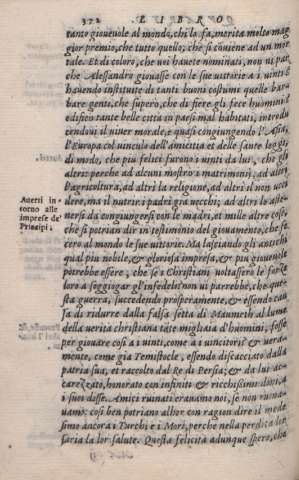 372 LIBRO
tanto gioueuole al mondo, chi la fa, merita molto mag
gior premio, che tutto quello, che si cōuiene ad un mor
tale. Et di coloro, che uoi hauete nominati, non ui par,
che Alessandro giouasse con le sue uittorie a i uinti &
hauendo instituite di tanti buoni costumi quelle bar
bare genti, che superò, che di fiere gli fece huomini? &
edificò tante belle città in paesi mal habitati, introdu
cendoui il uiuer morale, e quasi congiungendo l'Asia,
l'Europa col uinculo dell'amicitia et delle sante leggi,
di modo, che piu felici furono i uinti da lui, che gli
altri: perche ad alcuni mostrò i matrimonij, ad altri
l'agricoltura, ad altri la religione, ad altri il non ucci
dere, ma il nutrire i padri già uecchi; ad altri lo aste-
nersi da congiungersi con le madri, et mille altre cose,
che si potrian dir in testimonio del giouamento, che fe
cero al mondo le sue uittorie. Ma lasciando gli antichi
qual piu nobile, & gloriosa impresa, & piu gioueuole
potrebbe essere, che se i Christiani uoltassero le forze
loro a soggiogar gl'infedeli? non ui parrebbe, che que-
sta guerra, succedendo prosperamente, & essendo cau
sa di ridurre dalla falsa setta di Maumeth al lume
della uerità christiana tāte migliaia d'huomini, fosse
per giouare così a i uinti, come a i uincitori? & uera-
mente, come già Temistocle, essendo discacciato dalla
patria sua, et raccolto dal Re di Persia; & da lui ac-
carezzato, honorato con infiniti & ricchissimi doni, a
i suoi disse. Amici ruinati erauamo noi, se non ruina-
uamo: così ben potriano alhor con ragion dire il mede
simo ancora i Turchi e i Mori, perche nella perdita di
saria la lor salute. Questa felicità adunque spero, che
Auerti in-
torno alle
imprese de'
Principi.